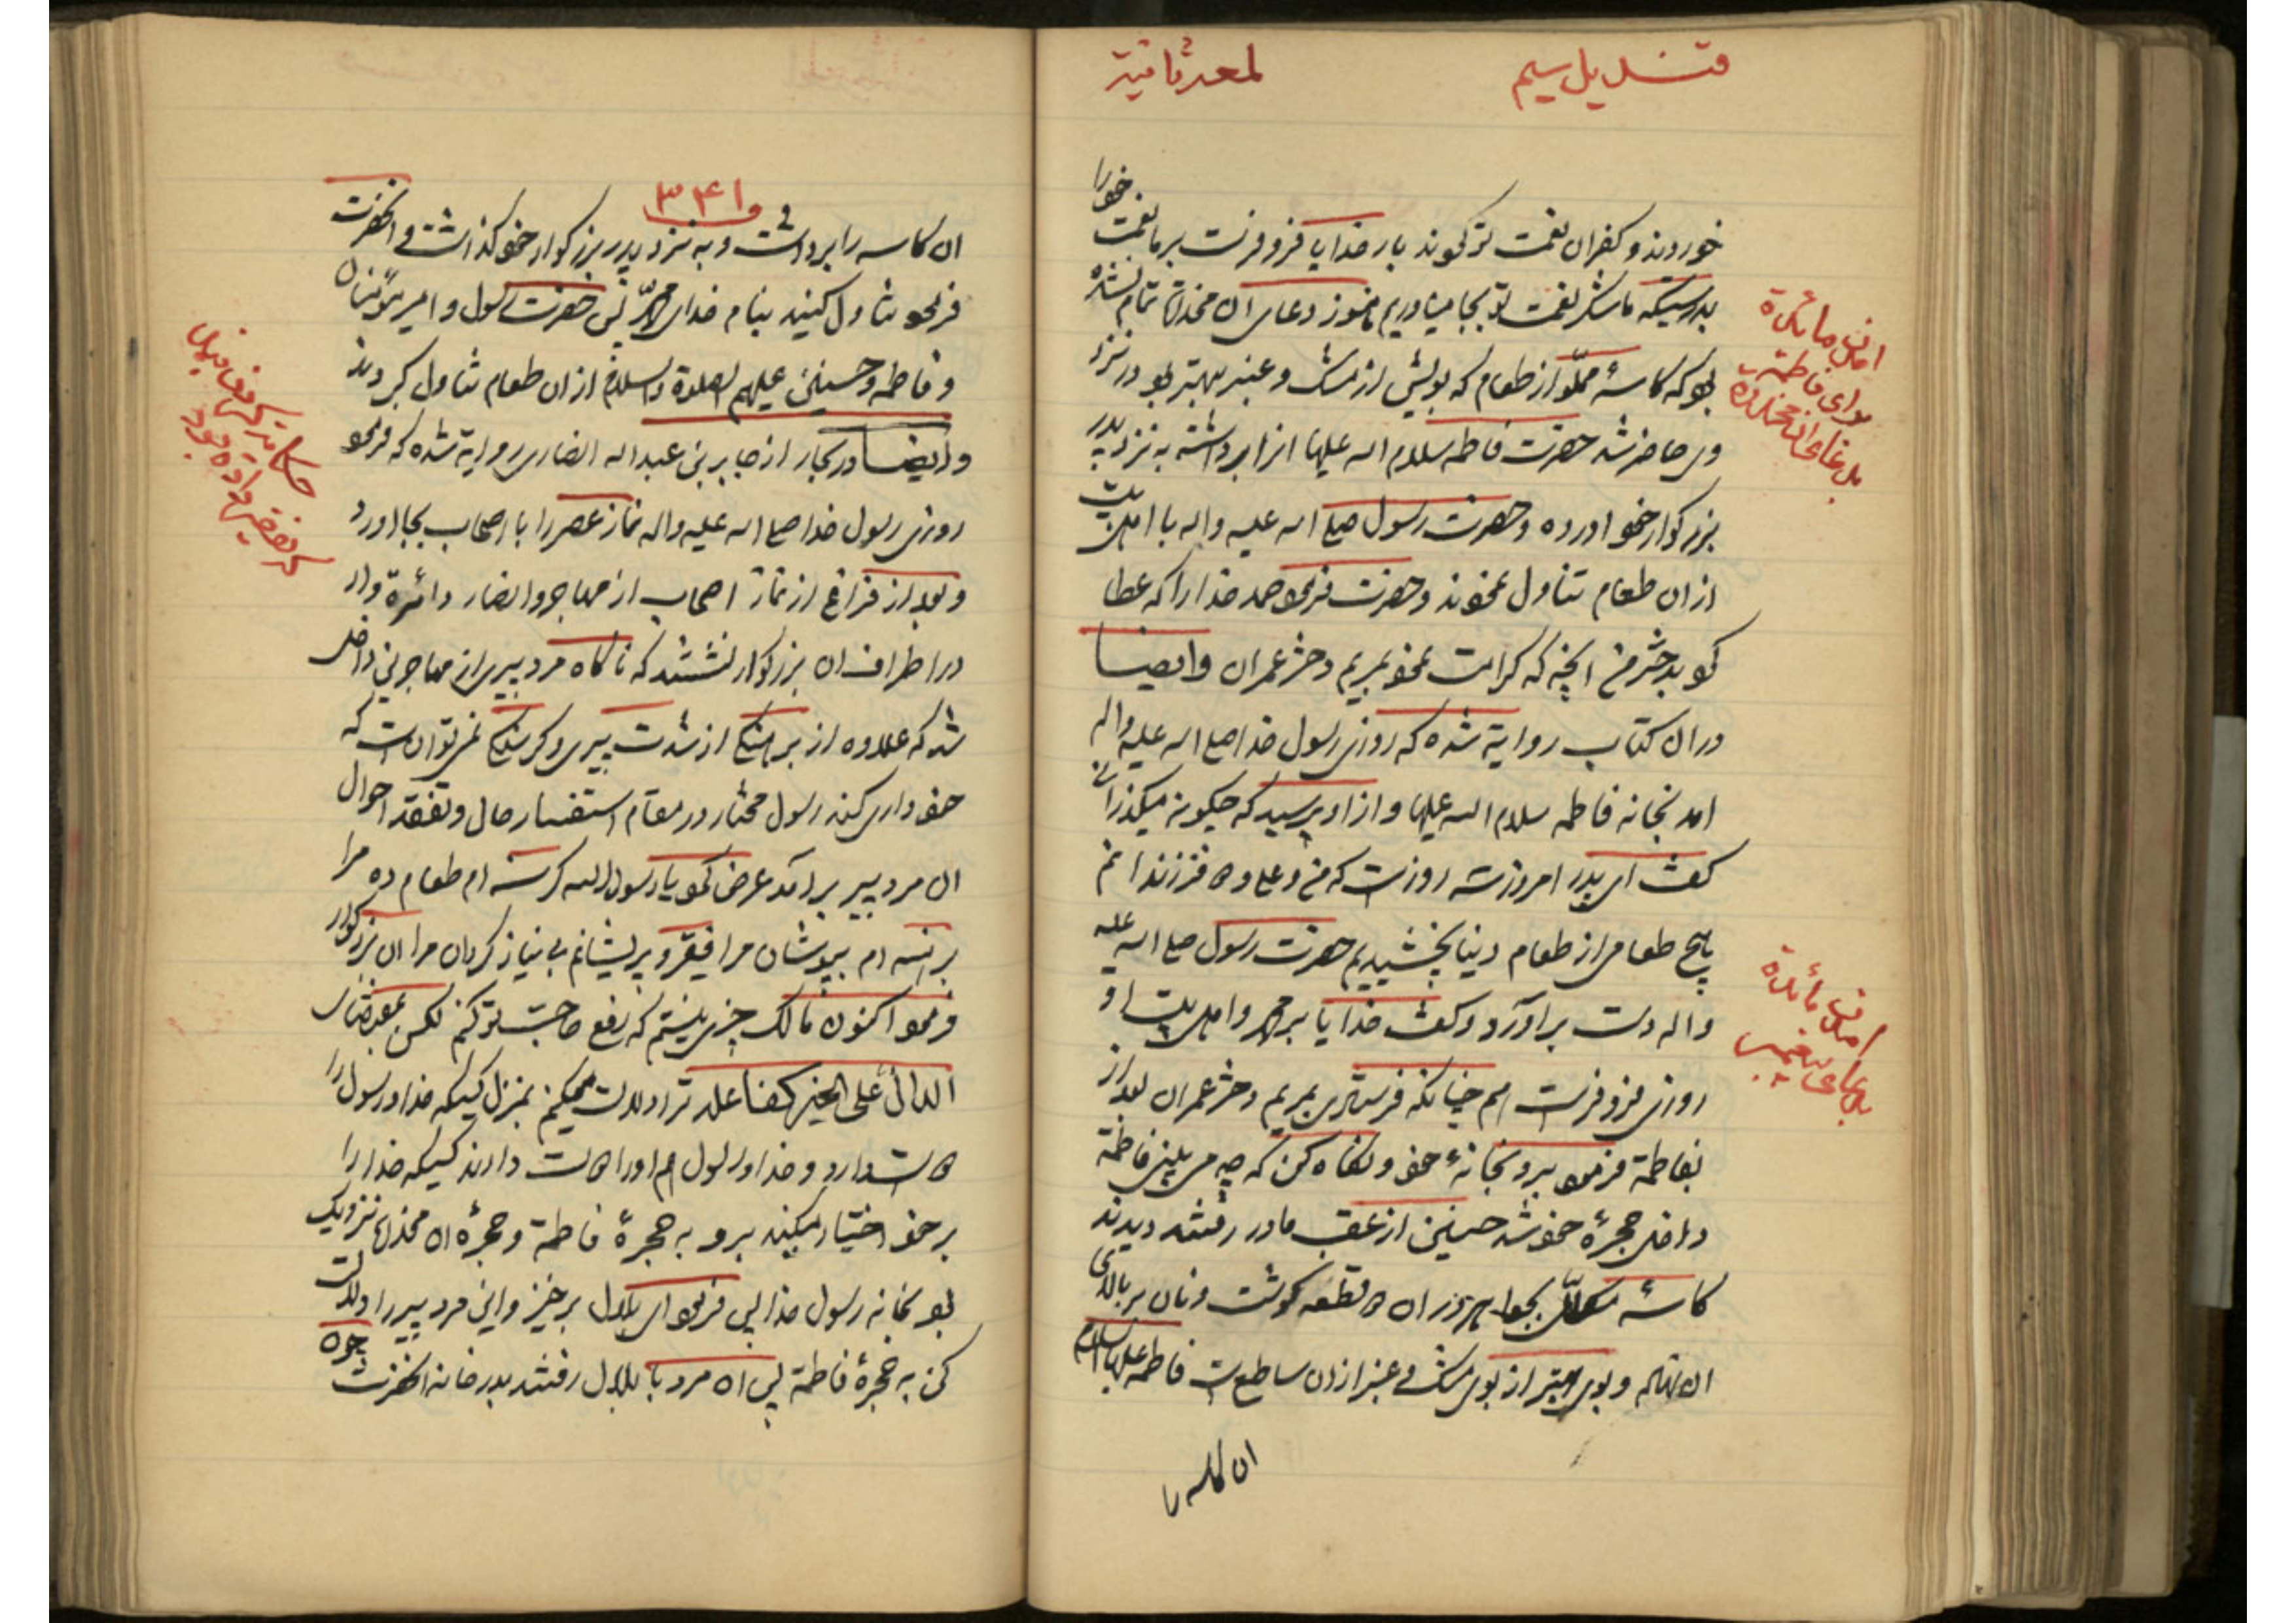 قندیل سیم
لمعه ثانیه
خوردند و کفران نعمت تو نمودند بار خدایا فرو فرست بر ما نعمت خود را
بدرستیکه ما شکر نعمت تو بجا میاوریم هنوز دعای ان مخدره تمام نشده
بود که کاسهٔ مملّو از طعام که بویش از مشک و عنبر بهتر بود در نزد
وی حاضر شد حضرت فاطمه سلام اله علیها انرا برداشته به نزد پدر
بزرکوار خود اورده و حضرت رسول صلع اله علیه و اله با اهل بیت
ازان طعام تناول نمودند و حضرت فرمود حمد خدا را که عطا
بدختر من انچه که کرامت نمود بمریم دختر عمران وایضا
دران کتاب روایة شده که روزی رسول خدا صلع اله علیه واله
امد بخانه فاطمه سلام اله علیها و از او پرسید که چکونه میکذرانی
کفت ای پدر امروز سه روز است که من و علی و فرزندانم
هیچ طعامی از طعام دنیا نچشیدیم حضرت رسول صلع اله علیه
واله دست براورد و کفت خدایا بر محمد و اهل بیت او
روزی فرو فرست هم چنانکه فرستادی بمریم دختر عمران بعد از
بفاطمة فرمود برو بخانهٔ خود و نکاه کن که چه می بینی فاطمة
داخل حجرهٔ خود شد حسنین از عقب مادر رفتند دیدند
کاسهٔ مکلّل بجواهر در ان قطعه کوشت و نان بر بالای
ان نهاده و بوی بهتر از بوی مشک و عنبر ازان ساطع است فاطمه علیها السلام
ان کاسه را
امدن مائدة
برای فاطمة
بدعای ان مخدرة
امدن مائدة
بدعای پیغمبر
۳۴۱
ان کاسه را برداشت و به نزد پدر بزرکوار خود کذاشت و انحضرت
فرمود تناول کنید بنام خدای پس حضرت رسول و امیر مؤمنان
و فاطمه و حسنین علیهم الصلوة والسلام ازان طعام تناول کردند
وایضا در بحار از جابر بن عبد اله انصاری روایة شده که فرمود
روزی رسول خدا صلع اله علیه واله نماز عصر را با اصحاب بجا اورد
و بعد از فراغ از نماز اصحاب از مهاجر و انصار دائرة وار
در اطراف ان بزرکوار نشستند که ناکاه مرد پیری از مهاجرین داخل
شد که علاوه از برهنکی از شدت پیری و کرسنکی نمیتوانست که
خود داری کند رسول مختار در مقام استفسار حال و تفقد احوال
ان مرد پیر برامد عرض نمود یا رسول اله کرسنه ام طعام ده مرا
برهنه ام بپوشان مرا فقیر و پریشانم بی نیاز کردان مرا ان بزرکوار
فرمود اکنون مالک چیزی نیستم که رفع حاجت تو کنم لکن بمقتضای
الدال علی الخیر کفاعله ترا دلالت میکنم بمنزل کسیکه خدا و رسول را
دوست دارد و خدا و رسول هم او را دوست دارند کسیکه خدا را
بر خود اختیار میکند برو به حجرهٔ فاطمة و حجرهٔ ان مخدره نزدیک
بود بخانه رسول خدا پس فرمود ای بلال برخیز و این مرد پیر را دلالت
کن به حجرهٔ فاطمة پس ان مرد با بلال رفتند بدرخانه انحضرت چون